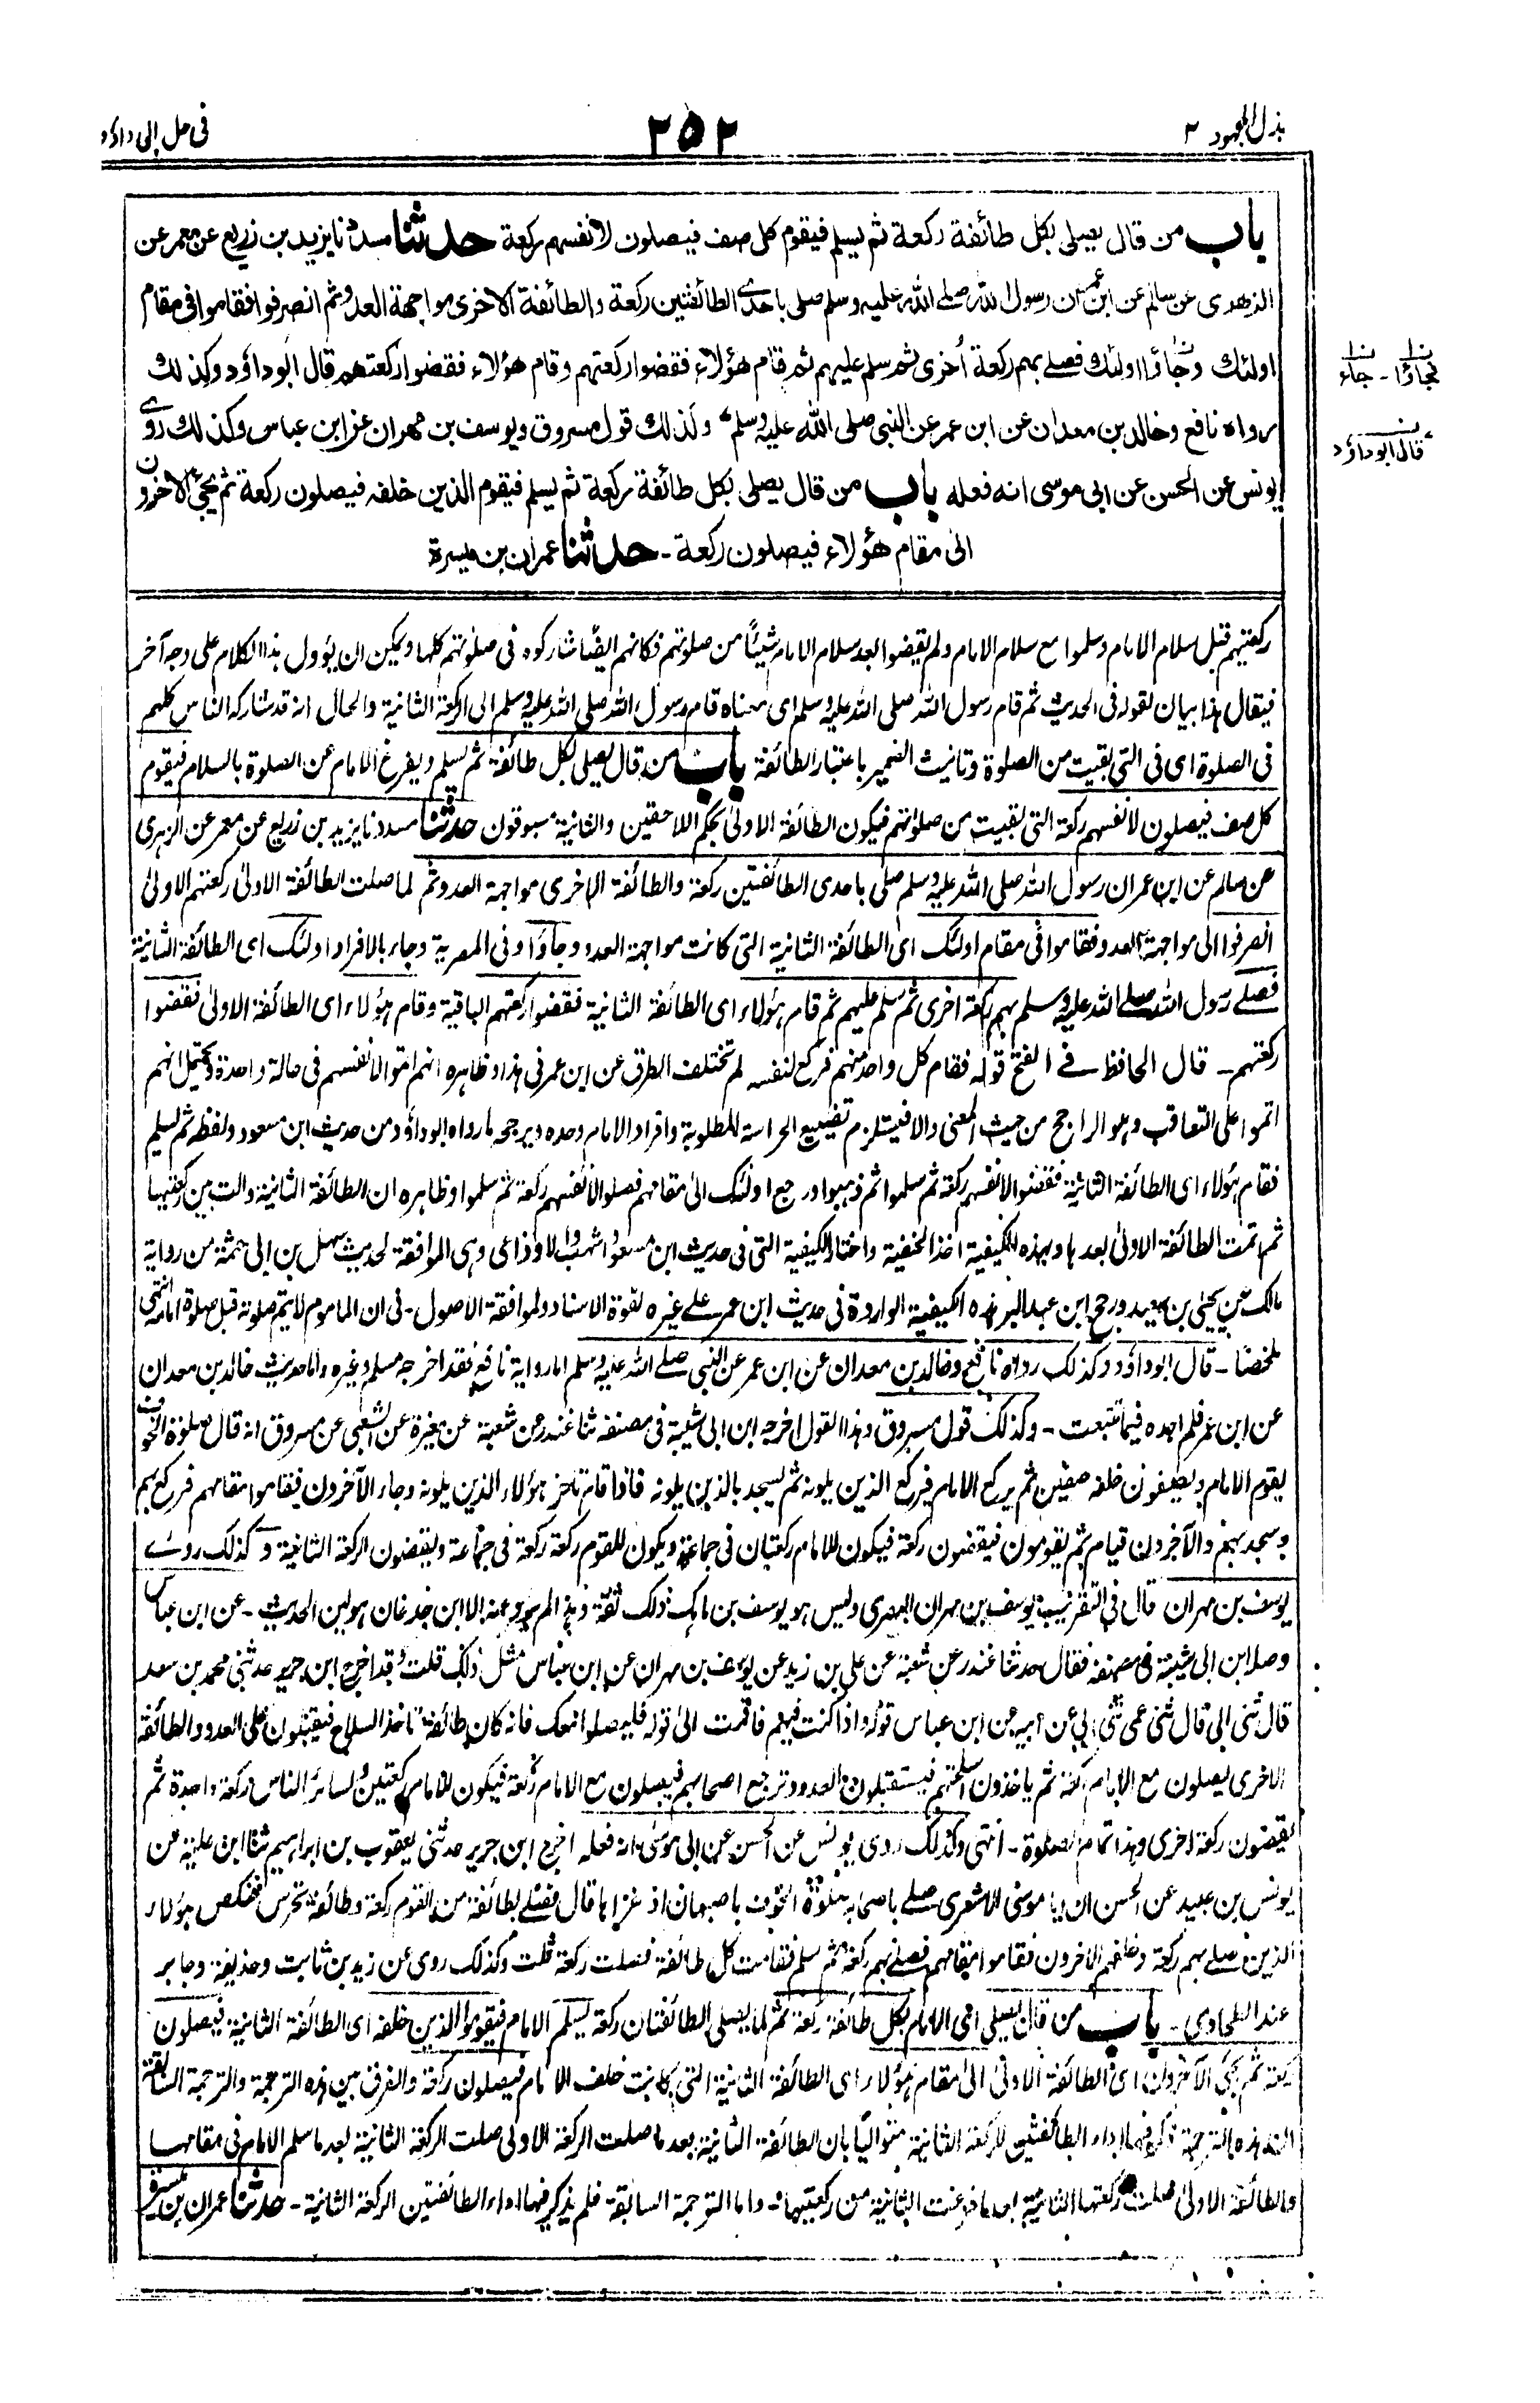 بذل المجهود ٢
٢٥٢
في حل ابي داؤد
باب من قال يصلى بكل طائفة ركعة ثم يسلم فيقوم كل صف فيصلون لانفسهم ركعة حدثنا مسدد نا يزيد بن زريع عن معمر عن
الزهرى عن سالم عن ابن عمر ان رسول الله صلى الله عليه وسلم صلى باحدى الطائفتين ركعة والطائفة الاخرى مواجهة العدو ثم انصرفوا فقاموا فى مقام
اولئك وجاؤا اولئك فصلى بهم ركعة أخرى ثم سلم عليهم ثم قام هؤلاء فقضوا ركعتهم وقام هؤلاء فقضوا ركعتهم قال ابوداؤد وكذلك
رواه نافع وخالد بن معدان عن ابن عمر عن النبى صلى الله عليه وسلم وكذلك قول مسروق ويوسف بن مهران عن ابن عباس وكذلك روى
يونس عن الحسن عن ابى موسى انه فعله باب من قال يصلى بكل طائفة ركعة ثم يسلم فيقوم الذين خلفه فيصلون ركعة ثم يجئ الاخرون
الى مقام هؤلاء فيصلون ركعة - حدثنا عمران بن ميسرة
ن ن
فجاؤا - جاء
ن
قال ابوداؤد
ركعتيهم قبل سلام الامام وسلموا مع سلام الامام ولم يقضوا بعد سلام الامام شيئا من صلوتهم فكانهم ايضا شاركوه فى صلوتهم كلها ويمكن ان يؤول هذا الكلام على وجه آخر
فيقال هذا بيان لقوله فى الحديث ثم قام رسول الله صلى الله عليه وسلم اى معناه قام رسول الله صلى الله عليه وسلم الى الركعة الثانية والحال انه قد شاركه الناس كلهم
فى الصلوة اى فى التى بقيت من الصلوة وتانيث الضمير باعتبار الطائفة باب من قال يصلى بكل طائفة ثم يسلم ويفرغ الامام عن الصلوة بالسلام فيقوم
كل صف فيصلون لانفسهم ركعة التى بقيت من صلوتهم فيكون الطائفة الاولى بحكم اللاحقين والثانية مسبوقون حدثنا مسدد نا يزيد بن زريع عن معمر عن الزهرى
عن سالم عن ابن عمر ان رسول الله صلى الله عليه وسلم صلى باحدى الطائفتين ركعة والطائفة الاخرى مواجهة العدو ثم لما صلت الطائفة الاولى ركعتهم الاولى
انصرفوا الى مواجهة العدو فقاموا فى مقام اولئك اى الطائفة الثانية التى كانت مواجهة العدو وجاؤا وفى المصرية وجاء بالافراد اولئك اى الطائفة الثانية
فصلى رسول الله صلى الله عليه وسلم بهم ركعة اخرى ثم سلم عليهم ثم قام هؤلاء اى الطائفة الثانية فقضوا ركعتهم الباقية وقام هؤلاء اى الطائفة الاولى فقضوا
ركعتهم - قال الحافظ فى الفتح قوله فقام كل واحد منهم فركع لنفسه لم تختلف الطرق عن ابن عمر فى هذا وظاهره انهم اتموا لانفسهم فى حالة واحدة ويحتمل انهم
اتموا على التعاقب وهو الراجح من حيث المعنى والا فيستلزم تضييع الحراسة المطلوبة وافراد الامام وحده ويرجحه ما رواه ابوداؤد من حديث ابن مسعود ولفظه ثم سلم
فقام هؤلاء اى الطائفة الثانية فقضوا لانفسهم ركعة ثم سلموا ثم ذهبوا ورجع اولئك الى مقامهم فصلوا لانفسهم ركعة ثم سلموا وظاهره ان الطائفة الثانية والت بين ركعتيها
ثم اتمت الطائفة الاولى بعدها وبهذه الكيفية اخذ الحنفية واختار الكيفية التى فى حديث ابن مسعود اشهب والاوزاعى وهى الموافقة لحديث سهل بن ابى حثمة من رواية
مالك عن يحيى بن سعيد ورجح ابن عبد البر هذه الكيفية الواردة فى حديث ابن عمر على غيره لقوة الاسناد ولموافقة الاصول - فى ان الماموم لا يتم صلوته قبل صلوة امامه انتهى
ملخصا - قال ابوداؤد وكذلك رواه نافع وخالد بن معدان عن ابن عمر عن النبى صلى الله عليه وسلم اما رواية نافع فقد اخرجه مسلم وغيره واما حديث خالد بن معدان
عن ابن عمر فلم اجده فيما تتبعت - وكذلك قول مسروق وهذا القول اخرجه ابن ابى شيبة فى مصنفه ثنا غندر عن شعبة عن مغيرة عن الشعبى عن مسروق انه قال صلوة الخوف
يقوم الامام ويصفون خلفه صفين ثم يركع الامام فيركع الذين يلونه ثم يسجد بالذين يلونه فاذا قام تاخر هؤلاء الذين يلونه وجاء الآخرون فقاموا مقامهم فركع بهم
وسجد بهم والآخرون قيام ثم يقومون فيقضون ركعة فيكون للامام ركعتان فى جماعة ويكون للقوم ركعة ركعة فى جماعة ويقضون الركعة الثانية وكذلك روى
يوسف بن مهران قال فى التقريب يوسف بن مهران البصرى وليس هو يوسف بن ماهك ذلك ثقة وهذا لم يرو عنه الا ابن جدعان هو لين الحديث - عن ابن عباس
وصله ابن ابى شيبة فى مصنفه فقال حدثنا غندر عن شعبة عن على بن زيد عن يوسف بن مهران عن ابن عباس مثل ذلك قلت وقد اخرج ابن جرير حدثنى محمد بن سعد
قال ثنى ابى قال ثنى عمى ثنى ابى عن ابيه عن ابن عباس قوله واذا كنت فيهم فاقمت الى قوله فليصلوا معك فانه كان طائفة تاخذ السلاح فيقبلون على العدو والطائفة
الاخرى يصلون مع الامام ركعة ثم ياخذون اسلحتهم فيستقبلون العدو وترجع اصحابهم فيصلون مع الامام ركعة فيكون للامام ركعتين ولسائر الناس ركعة واحدة ثم
يقضون ركعة اخرى وهذا تمام الصلوة - انتهى وكذلك روى يونس عن الحسن عن ابى موسى انه فعله اخرج ابن جرير حدثنى يعقوب بن ابراهيم ثنا ابن علية عن
يونس بن عبيد عن الحسن ان ابا موسى الاشعرى صلى باصحابه صلوة الخوف باصبهان اذ غزاها قال فصلى بطائفة من القوم ركعة وطائفة تحرس فنكص هؤلاء
الذين صلى بهم ركعة وخلفهم الآخرون فقاموا مقامهم فصلى بهم ركعة ثم سلم فقامت كل طائفة فصلت ركعة قلت وكذلك روى عن زيد بن ثابت وحذيفة وجابر
عند الطحاوى - باب من قال يصلى اى الامام بكل طائفة ركعة ثم لما يصلى الطائفتان ركعة يسلم الامام فيقوم الذين خلفه اى الطائفة الثانية فيصلون
ركعة ثم يجئ الآخرون اى الطائفة الاولى الى مقام هؤلاء اى الطائفة الثانية التى كانت خلف الامام فيصلون ركعة والفرق بين هذه الترجمة والترجمة السابقة
هذه الترجمة ذكر فيها اداء الطائفتين للركعة الثانية متواليا بان الطائفة الثانية بعد ما صلت الركعة الاولى صلت الركعة الثانية بعد ما سلم الامام فى مقامها
والطائفة الاولى صلت ركعتها الثانية بعد ما فرغت الثانية من ركعتيها - واما الترجمة السابقة فلم يذكر فيها اداء الطائفتين الركعة الثانية - حدثنا عمران بن ميسرة